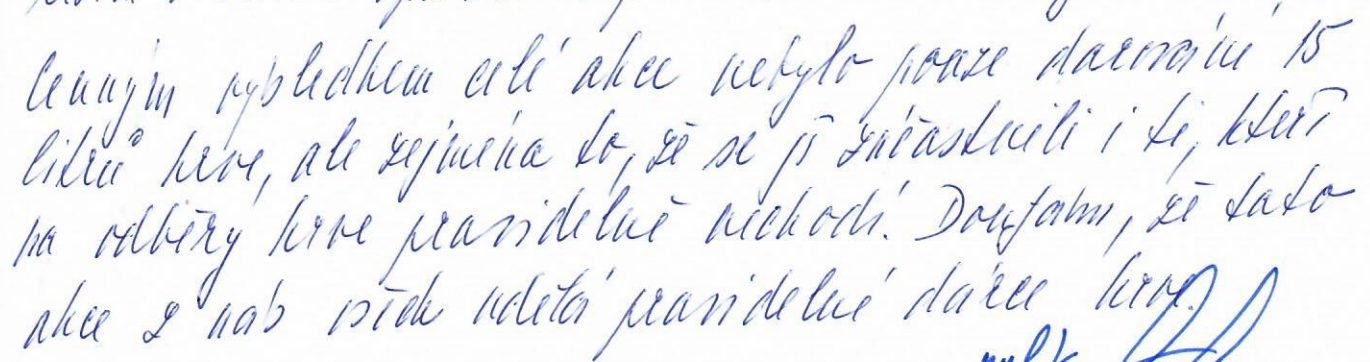 Cenným výsledkem celé akce nebylo pouze darování 15
litrů krve, ale zejména to, že se jí zúčastnili i ti, kteří
na odběry krve pravidelně nechodí. Doufám, že tato
akce z nás všech udělá pravidelné dárce krve.